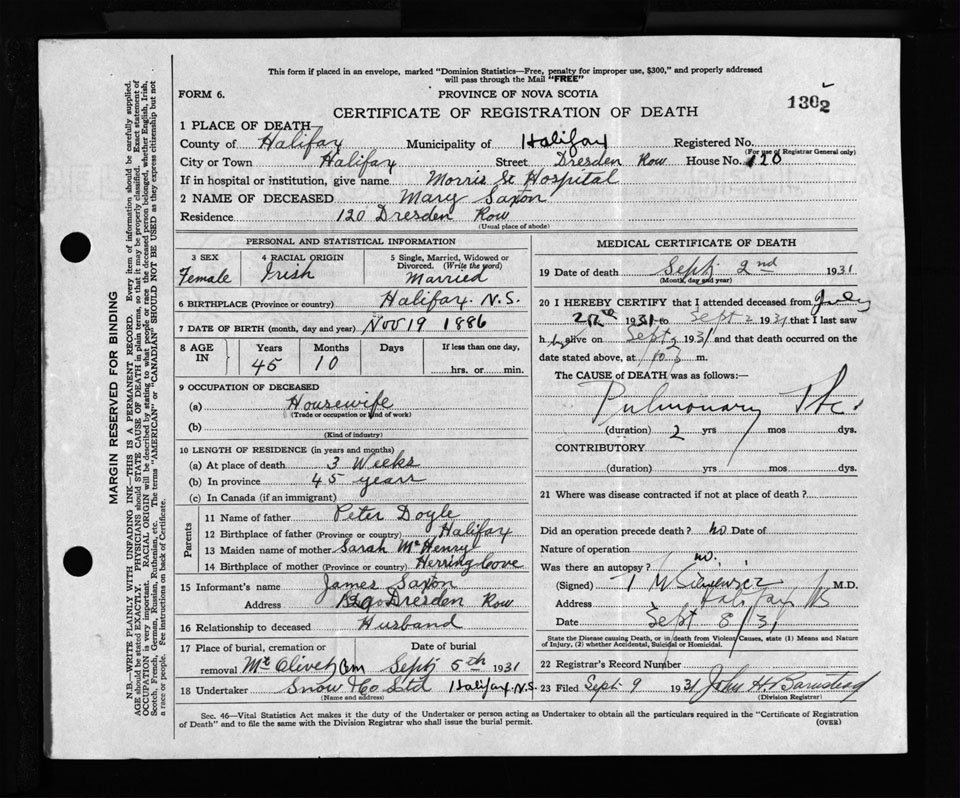 This form if placed in an envelope, marked "Dominion Statistics—Free, penalty for improper use, $300," and properly addressed
will pass through the Mail "FREE"
FORM 6.
PROVINCE OF NOVA SCOTIA
1302
CERTIFICATE OF REGISTRATION OF DEATH
1 PLACE OF DEATH
County of Halifax Municipality of Halifax Registered No.
(For use of Registrar General only)
City or Town Halifax Street Dresden Row House No. 120
If in hospital or institution, give name Morris St Hospital
2 NAME OF DECEASED Mary Saxton
Residence 120 Dresden Row
(Usual place of abode)
PERSONAL AND STATISTICAL INFORMATION
3 SEX
Female
4 RACIAL ORIGIN
Irish
5 Single, Married, Widowed or
Divorced. (Write the word)
Married
6 BIRTHPLACE (Province or country) Halifax. N.S.
7 DATE OF BIRTH (month, day and year) Nov 19 1886
8 AGE IN
Years Months Days If less than one day,
45 10
hrs. or min.
9 OCCUPATION OF DECEASED
(a) Housewife
(Trade or occupation or kind of work)
(b)
(Kind of industry)
10 LENGTH OF RESIDENCE (in years and months)
(a) At place of death 3 Weeks
(b) In province 45 years
(c) In Canada (if an immigrant)
Parents
11 Name of father Peter Doyle
12 Birthplace of father (Province or country) Halifax
13 Maiden name of mother Sarah McHenry
14 Birthplace of mother (Province or country) Herring Cove
15 Informant's name James Saxton
Address Dresden Row
16 Relationship to deceased Husband
17 Place of burial, cremation or
removal Mt Olivet Cem
Date of burial
Sept 5th 1931
18 Undertaker Snow & Co Ltd Halifax N.S.
(Name and address)
MEDICAL CERTIFICATE OF DEATH
19 Date of death Sept 2nd 1931
(Month, day and year)
20 I HEREBY CERTIFY that I attended deceased from July
1931 to Sept 2 1931 that I last saw
h er alive on Sept 1931 and that death occurred on the
date stated above, at m.
The CAUSE of DEATH was as follows:—
Pulmonary Tbc.
(duration) 2 yrs mos dys.
CONTRIBUTORY
(duration) yrs mos dys.
21 Where was disease contracted if not at place of death?
Did an operation precede death? no Date of
Nature of operation
Was there an autopsy? no.
(Signed) T M Sieniewicz M.D.
Address Halifax NS
Date Sept 8/31
State the Disease causing Death, or in death from Violent Causes, state (1) Means and Nature
of Injury, (2) whether Accidental, Suicidal or Homicidal.
22 Registrar's Record Number
23 Filed Sept 9 1931 John H. Barnstead
(Division Registrar)
Sec. 46—Vital Statistics Act makes it the duty of the Undertaker or person acting as Undertaker to obtain all the particulars required in the "Certificate of Registration
of Death" and to file the same with the Division Registrar who shall issue the burial permit.
(OVER)
MARGIN RESERVED FOR BINDING
N.B.—WRITE PLAINLY WITH UNFADING INK—THIS IS A PERMANENT RECORD. Every item of information should be carefully supplied.
AGE should be stated EXACTLY. PHYSICIANS should STATE CAUSE OF DEATH in plain terms, so that it may be properly classified. Exact statement of
OCCUPATION is very important. RACIAL ORIGIN will be described by stating to what people or race the deceased person belonged, whether English, Irish,
Scotch, French, German, Russian, Ruthenian, etc. The terms "AMERICAN" or "CANADIAN" SHOULD NOT BE USED as they express citizenship but not
a race or people. See instructions on back of Certificate.